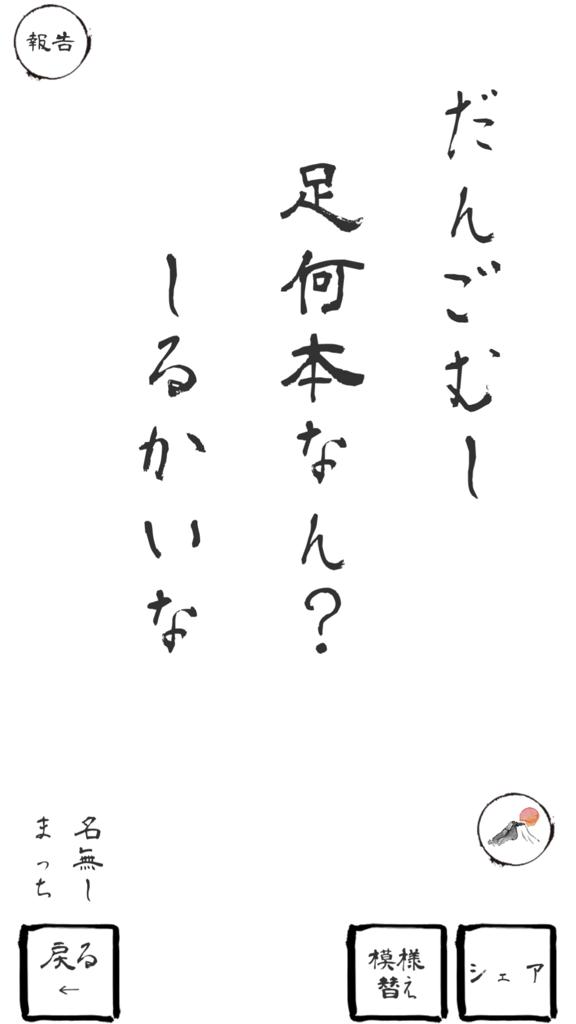 報告
だんごむし
足何本なん？
しるかいな
名無し
まっち
戻る
←
模様
替え
シェア